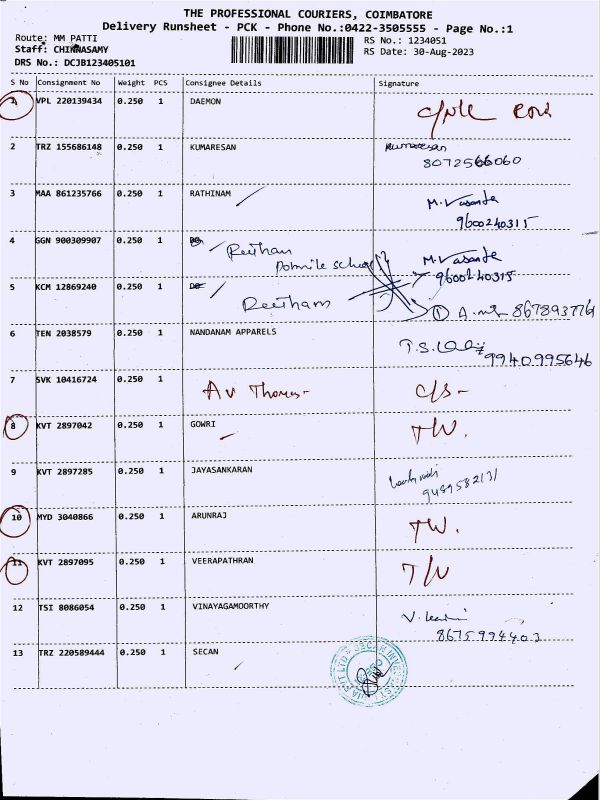 THE PROFESSIONAL COURIERS, COIMBATORE
Delivery Runsheet - PCK - Phone No.:0422-3505555 - Page No.:1
Route: MM PATTI
RS No.: 1234051
Staff: CHINNASAMY
RS Date: 30-Aug-2023
DRS No.: DCJB123405101
S No Consignment No Weight PCS Consignee Details Signature
1 VPL 220139434 0.250 1 DAEMON
2 TRZ 155686148 0.250 1 KUMARESAN Kumaresan
8072566060
3 MAA 861235766 0.250 1 RATHINAM M. Vasantha
9600240315
4 GGN 900309907 0.250 1 DO M. Vasantha
9600240315
5 KCM 12869240 0.250 1 DO
6 TEN 2038579 0.250 1 NANDANAM APPARELS
9940995646
7 SVK 10416724 0.250 1 A V Thomas - C/S -
8 KVT 2897042 0.250 1 GOWRI TW.
9 KVT 2897285 0.250 1 JAYASANKARAN
9489582131
10 MYD 3040866 0.250 1 ARUNRAJ TW.
11 KVT 2897095 0.250 1 VEERAPATHRAN T/W
12 TSI 8086054 0.250 1 VINAYAGAMOORTHY
8675994403
13 TRZ 220589444 0.250 1 SECAN